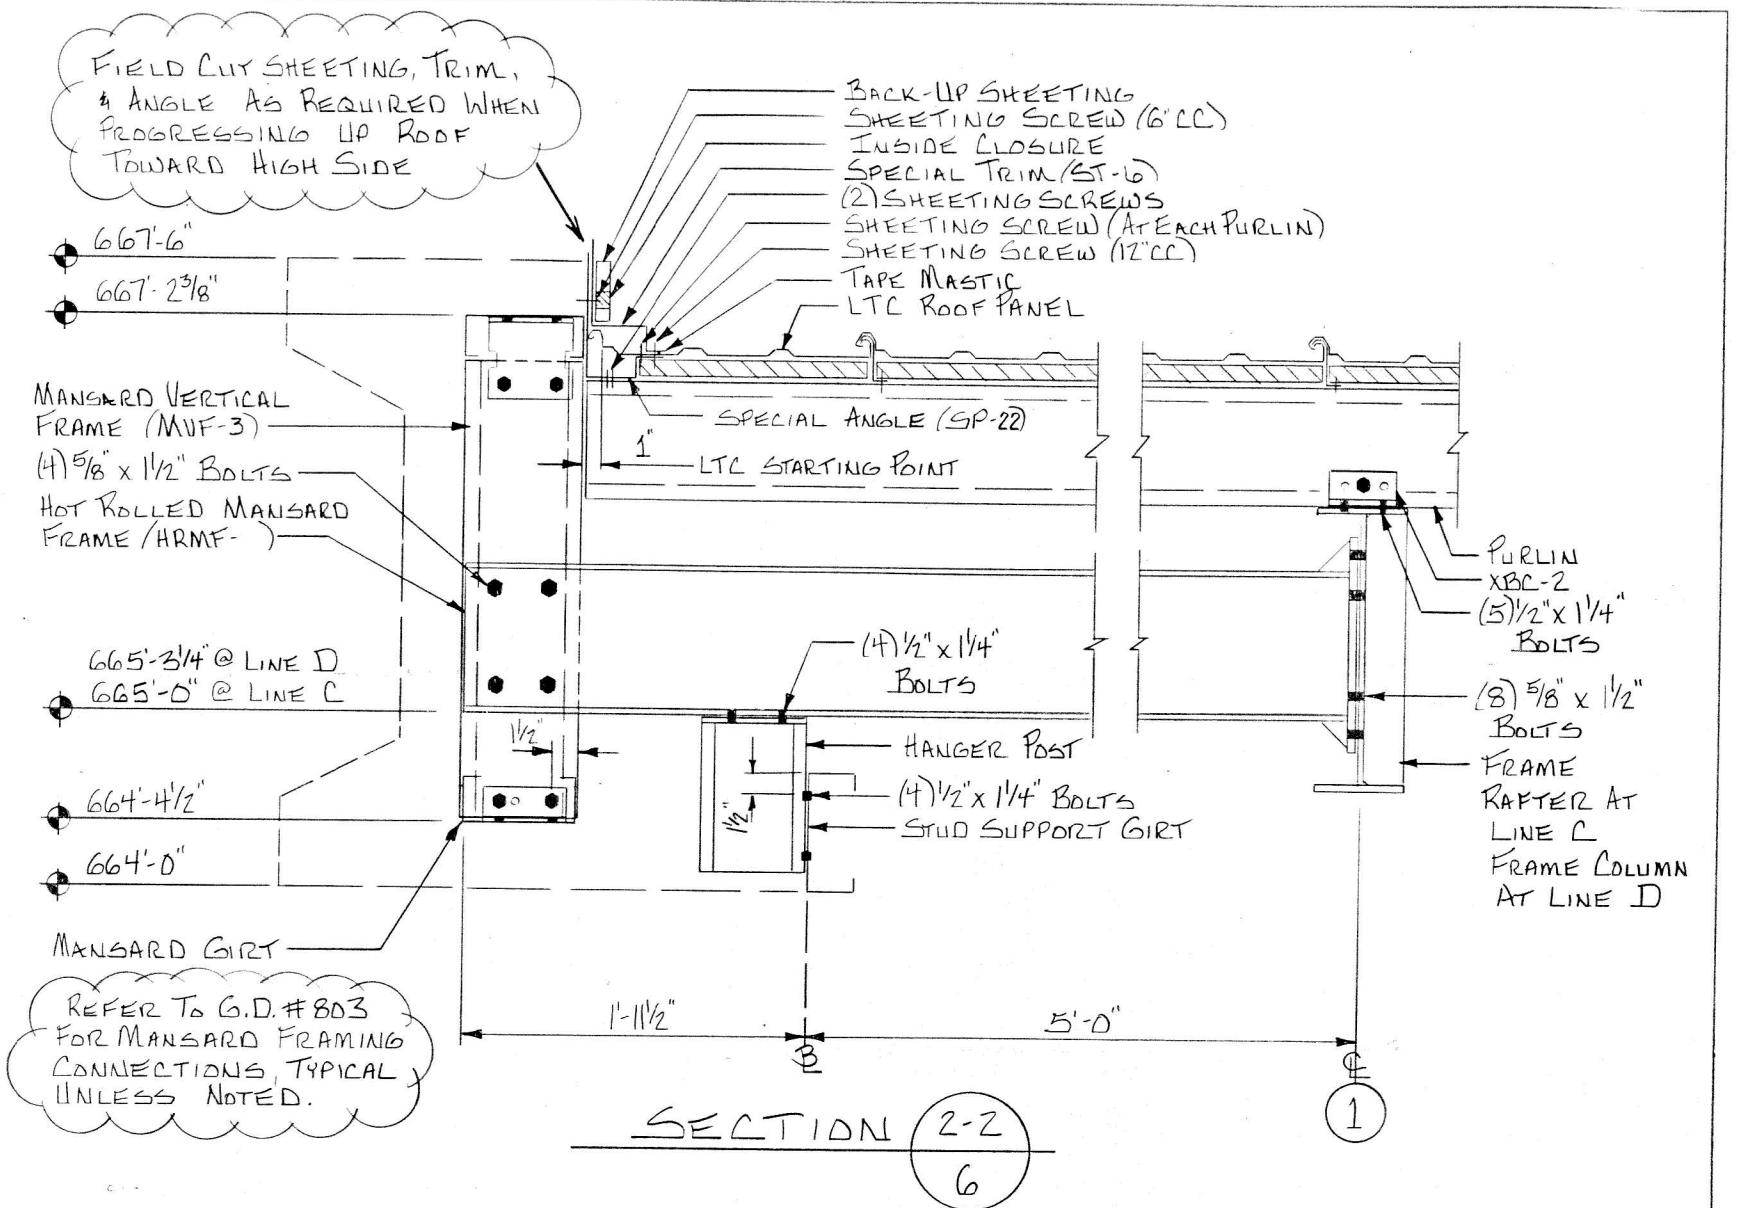 FIELD CUT SHEETING, TRIM,
& ANGLE AS REQUIRED WHEN
PROGRESSING UP ROOF
TOWARD HIGH SIDE
BACK-UP SHEETING
SHEETING SCREW (6"CC)
INSIDE CLOSURE
SPECIAL TRIM (ST-6)
(2) SHEETING SCREWS
SHEETING SCREW (AT EACH PURLIN)
SHEETING SCREW (12"CC)
TAPE MASTIC
LTC ROOF PANEL
667'-6"
667'-2 3/8"
MANSARD VERTICAL
FRAME (MVF-3)
(4) 5/8" x 1 1/2" BOLTS
HOT ROLLED MANSARD
FRAME (HRMF- )
SPECIAL ANGLE (SP-22)
1"
LTC STARTING POINT
PURLIN
XBC-2
(5) 1/2" x 1 1/4"
BOLTS
(8) 5/8" x 1 1/2"
BOLTS
FRAME
RAFTER AT
LINE C
FRAME COLUMN
AT LINE D
665'-3 1/4" @ LINE D
665'-0" @ LINE C
(4) 1/2" x 1 1/4"
BOLTS
1 1/2"
HANGER POST
(4) 1/2" x 1 1/4" BOLTS
STUD SUPPORT GIRT
1 1/2"
664'-4 1/2"
664'-0"
MANSARD GIRT
REFER TO G.D. #803
FOR MANSARD FRAMING
CONNECTIONS, TYPICAL
UNLESS NOTED.
1'-11 1/2"
5'-0"
B
CL
1
SECTION 2-2
6